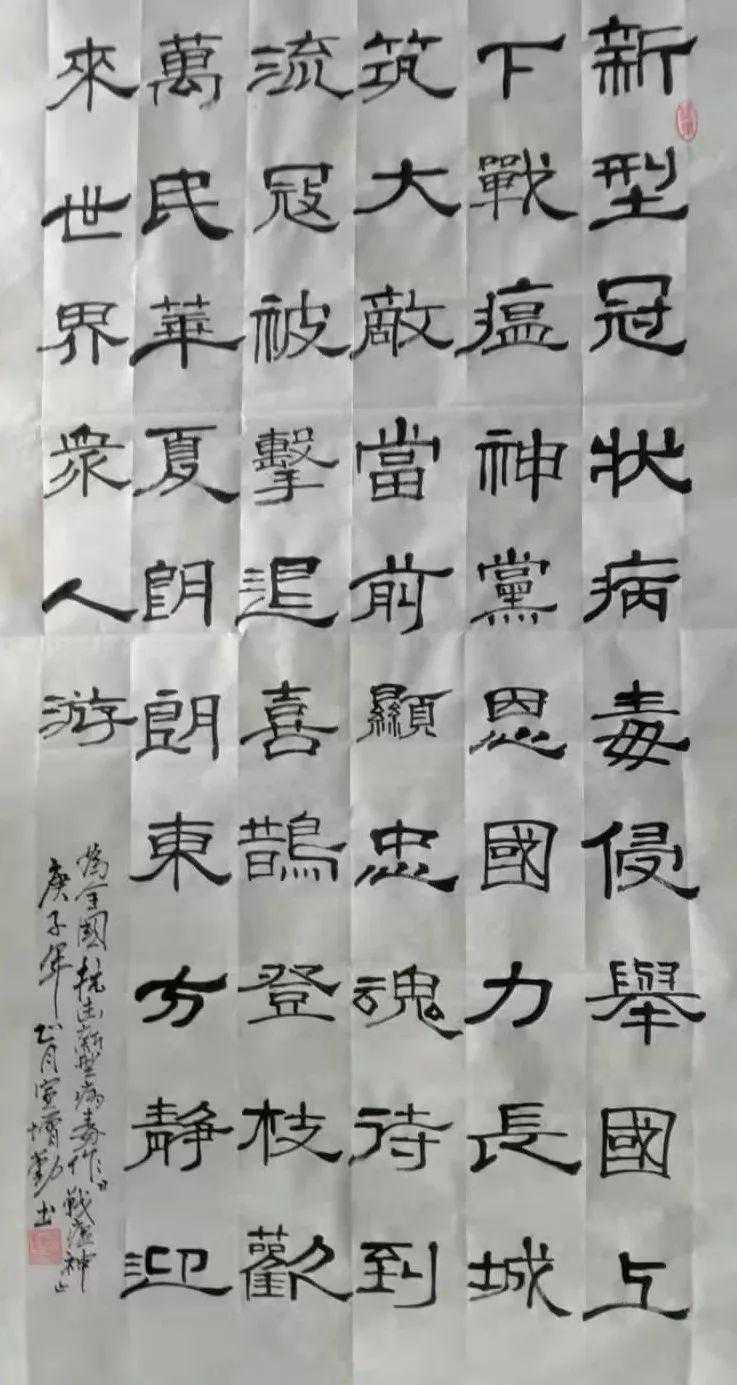 新型冠状病毒侵舉國上
下戰瘟神黨恩國力長城
筑大敵當前顯忠魂待到
流冠被擊退喜鵲登枝歡
萬民華夏朗朗東方靜迎
來世界衆人游
為全國抗击新型病毒作战瘟神
庚子年正月